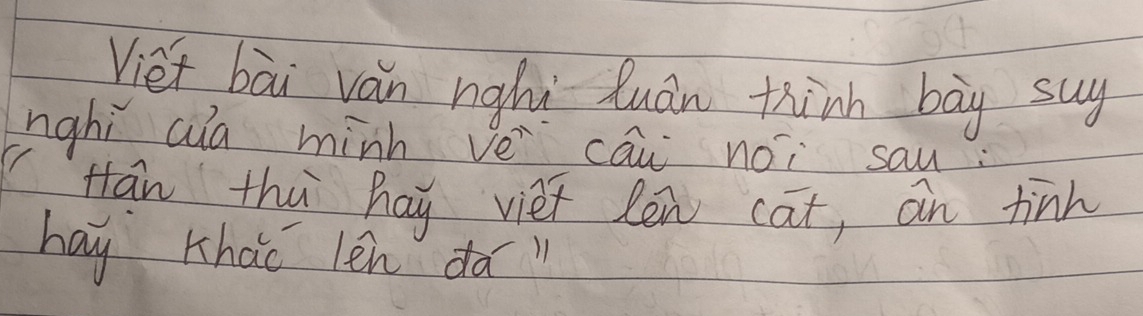 Viết bài văn nghị luận trình bày suy
nghĩ của mình về câu nói sau :
"Hận thù hãy viết lên cát, ân tình
hãy khắc lên đá"